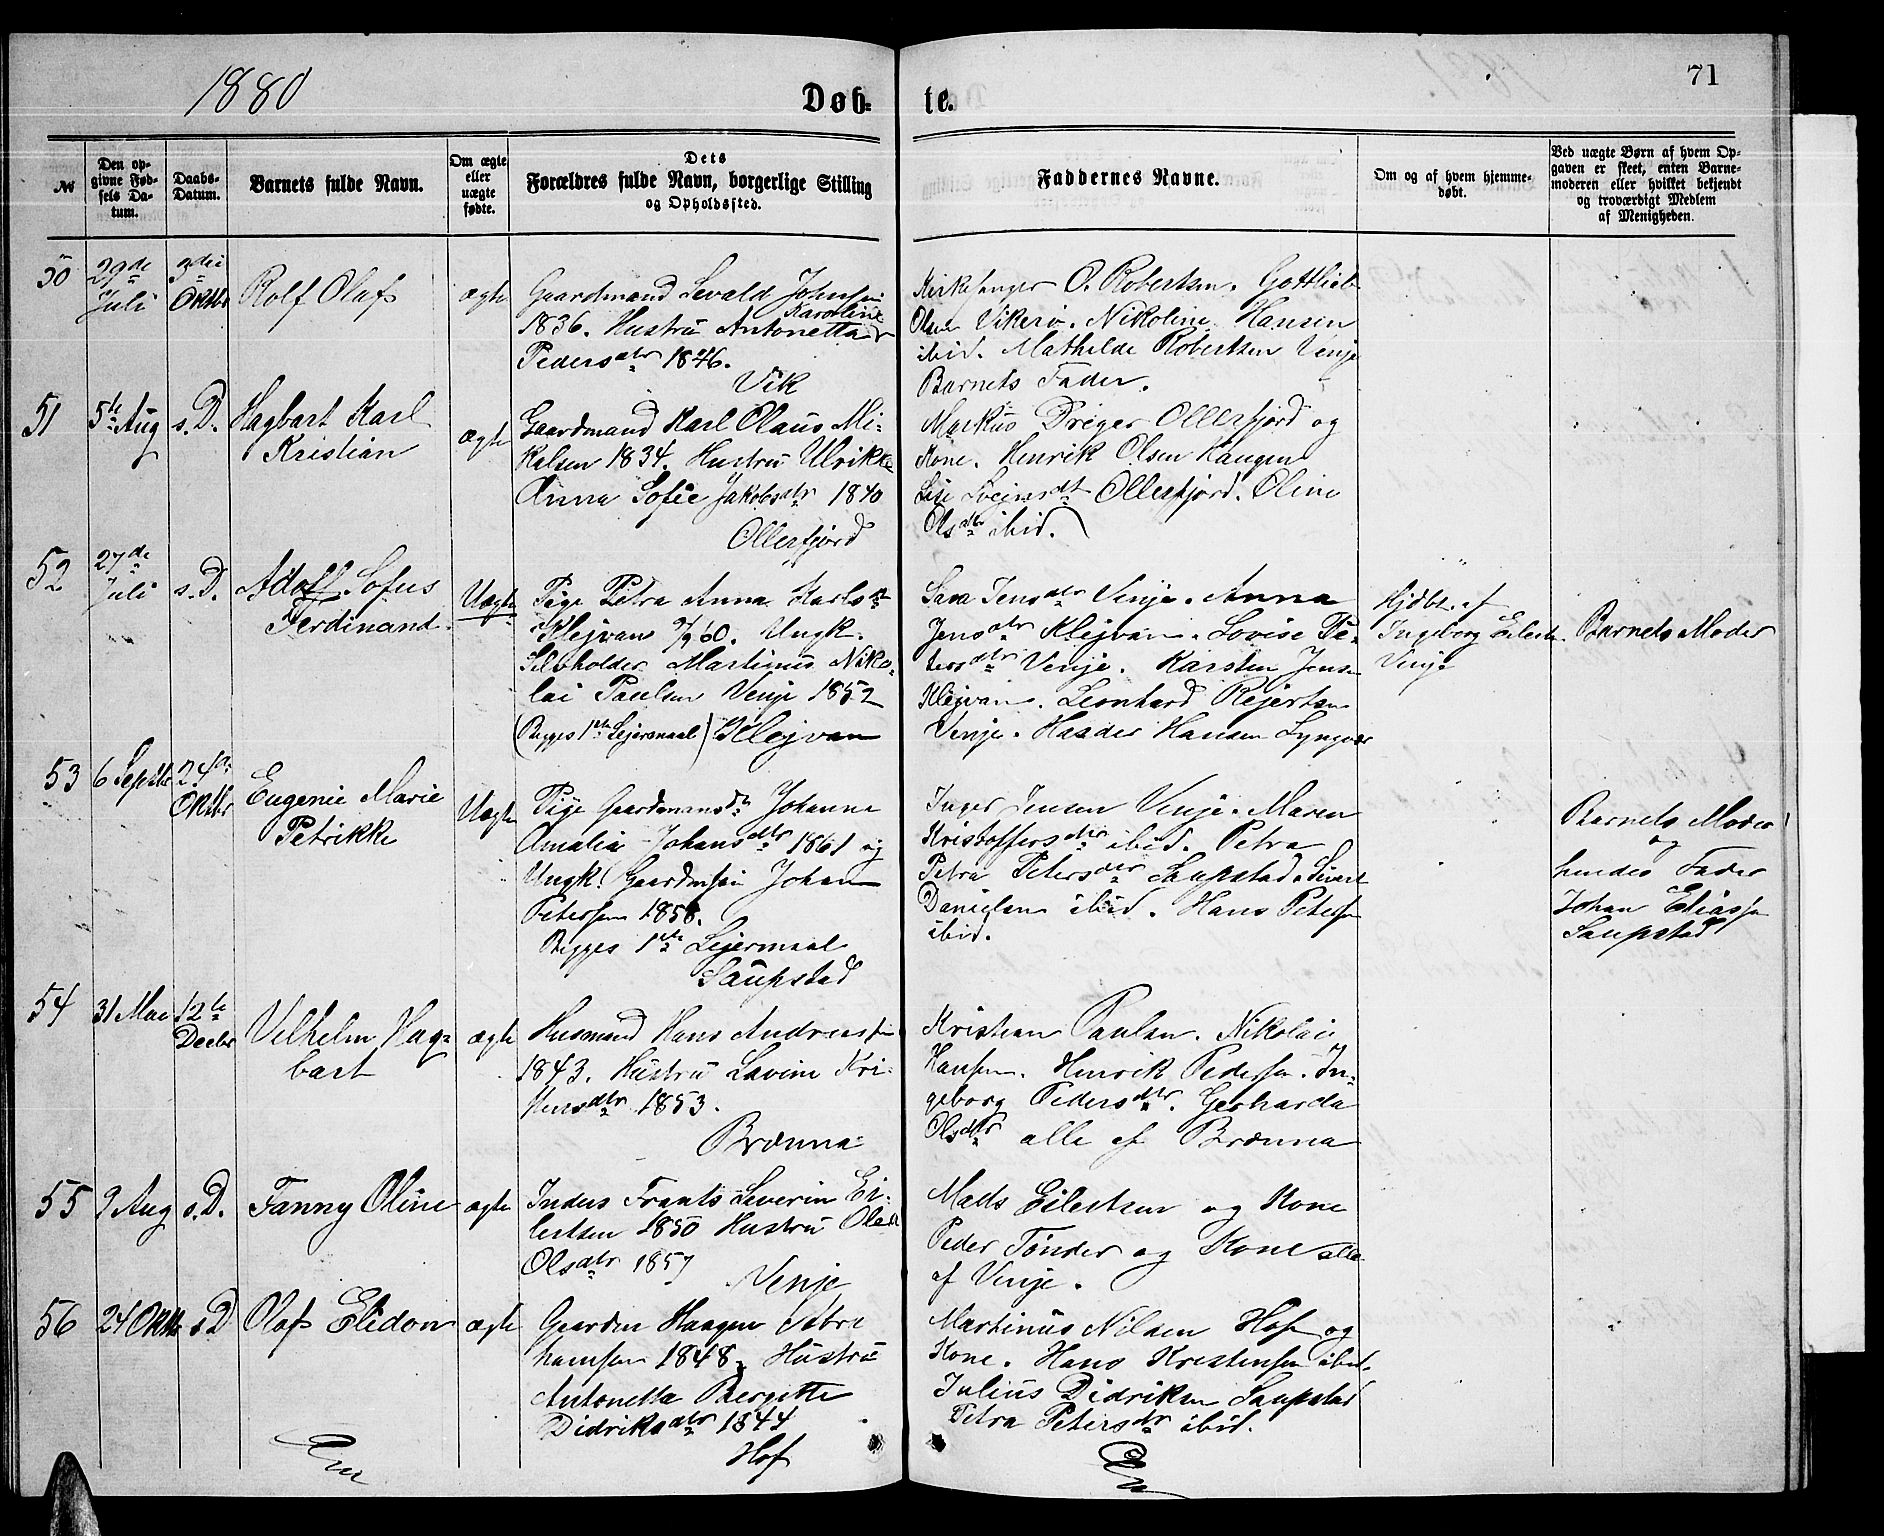 1880
Døb-
te.
71
№
Den op-
givne Fød-
sels Da-
tum.
Daabs-
Datum.
Barnets fulde Navn.
Om ægte
eller
uægte
fødte.
Dets
Forældres fulde Navn, borgerlige Stilling
og Opholdssted.
Faddernes Navne.
Om og af hvem hjemme-
døbt.
Ved uægte Børn af hvem Op-
gaven er skeet, enten Barne-
moderen eller hvilket bekjendt
og troværdigt Medlem
af Menigheden.
50
29de
Juli
3die
Oktbr
Rolf Olaf
ægte
Gaardmand Sevald Johnsen
Karoline
1836. Hustru Antonetta
Pedersdtr 1846.
Vik
Kirkesanger O. Robertsen. Gottlieb
Olsen Vikerø. Nikoline Hansen
ibid. Mathilde Robertsen Venje
Barnets Fader.
51
5te Aug
s.D.
Hagbart Karl
Kristian
ægte
Gaardmand Karl Olaus Mi-
kalsen 1834. Hustru Ulrikke
Anna Sofie Jakobsdtr 1840
Ollerfjord
Markus Dreyer Ollerfjord og
Kone. Henrik Olsen Haugen
Lise Svejnsdt Ollerfjord. Oline
Olsdtr ibid.
52
27de
Juli
s.D.
Adolf Sofus
Ferdinand
Uægte
Pige Petra Anna Karlsdt
Klejvan 9/9 60. Ungk.
Selvholder Martinus Niko-
lai Paulsen Venje 1852
(Begges 1ste Lejermaal) Klejvan
Sara Jensdtr Venje. Anna
Jensdtr Klejvan. Lovise Pe-
tersdtr Venje. Karsten Jens
Klejvan. Leonhard Rejertsen
Venje. Haader Hansen Lyngvær
Hjdbt. af
Ingeborg Eilerts
Venje
Barnets Moder
53
6 Septbr
24de
Oktbr
Eugenie Marie
Petrikke
Uægte
Pige Gaardmansdtr Johanna
Amalia Johansdtr 1861 og
Ungk. Gaardmsøn Johan
Petersen 1858.
Begges 1ste Lejermaal
Saupstad
Inger Jensen Venje. Maren
Kristoffersdtr ibid. Petra
Petra Petersdtr Saupstad. Sivert
Danielsen ibid. Hans Petersen
ibid.
Barnets Moder
og
hendes Fader
Johan Eliassen
Saupstad
54
31 Mai
12te
Decbr
Vilhelm Hag-
bart
ægte
Husmand Hans Andreassen
1843. Hustru Lavine Kri-
stensdtr 1853.
Brænna
Kristian Paulsen. Nikolai
Hansen. Henrik Pedersen. In-
geborg Pedersdtr. Gerharda
Olsdtr alle af Brænna
55
9 Aug
s.D.
Fanny Oline
ægte
Inders Frants Severin Ei-
lertsen 1850 Hustru Olea
Olsdtr 1857
Venje
Mads Eilertsen og Kone
Peder Tønder og Kone alle
af Venje.
56
24 Oktbr
s.D
Olaf Elidon
ægte
Gaardm Haagen Abra
hamsen 1848. Hustru
Antonetta Bergitte
Didriksdtr 1844
Hof
Martinus Nilsen Hof og
Kone. Hans Kristensen ibid.
Julius Didriksen Saupstad
Petra Petersdtr ibid.